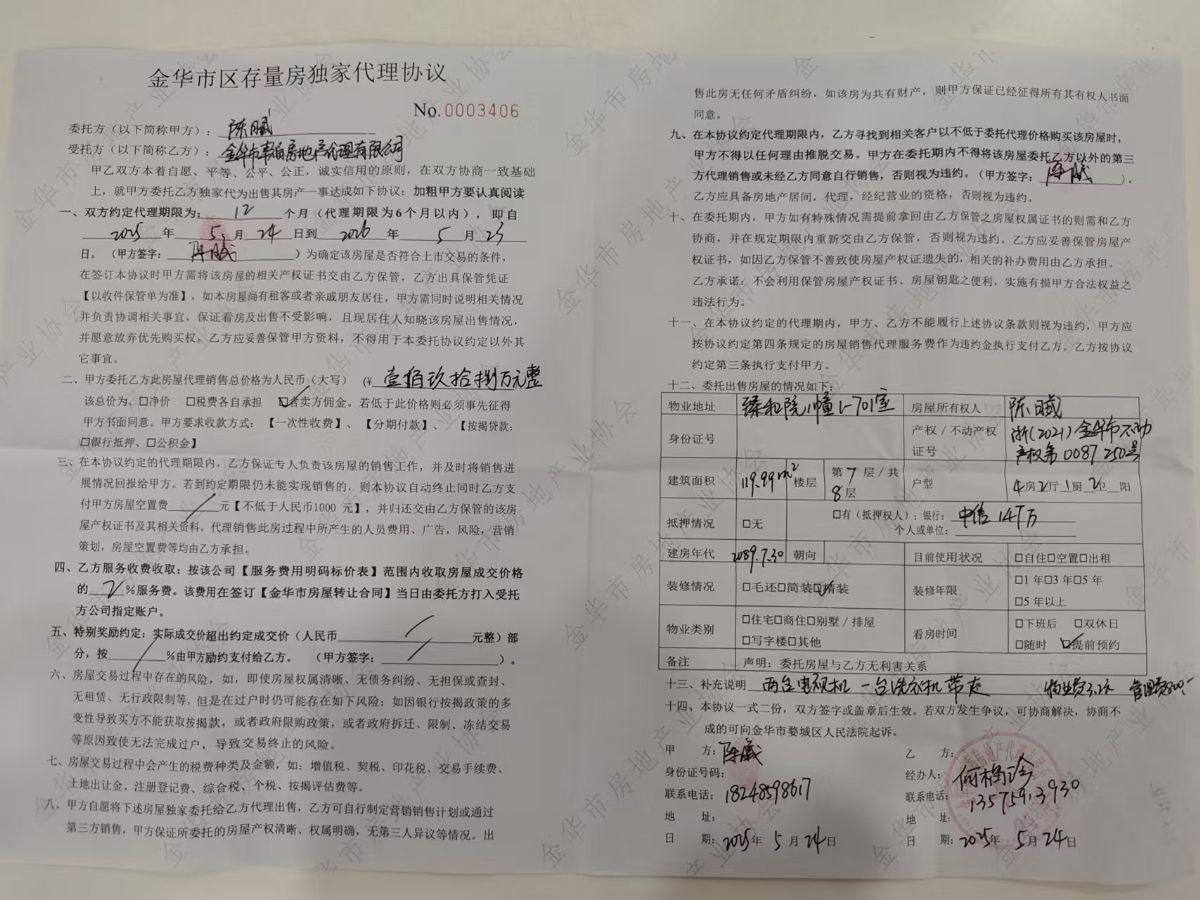 金华市区存量房独家代理协议
No.0003406
委托方（以下简称甲方）：陈
受托方（以下简称乙方）：金华市 房地产代理有限公司
甲乙双方本着自愿、平等、公平、公正，诚实信用的原则，在双方协商一致基础
上，就甲方委托乙方独家代为出售其房产一事达成如下协议：加粗甲方要认真阅读
一、双方约定代理期限为：12个月（代理期限为6个月以内），即自
2025年5月24日到2026年5月23
日。（甲方签字：陈 ）为确定该房屋是否符合上市交易的条件，
在签订本协议时甲方需将该房屋的相关产权证书交由乙方保管，乙方出具保管凭证
【以收件保管单为准】，如本房屋尚有租客或者亲戚朋友居住，甲方需同时说明相关情况
并负责协调相关事宜，保证看房及出售不受影响，且现居住人知晓该房屋出售情况，
并愿意放弃优先购买权。乙方应妥善保管甲方资料，不得用于本委托协议约定以外其
它事宜。
二、甲方委托乙方此房屋代理销售总价格为人民币（大写）（¥壹佰玖拾捌万元整
该总价为、□净价 □税费各自承担 □含卖方佣金。若低于此价格则必须事先征得
甲方书面同意。甲方要求收款方式：【一次性收费】、【分期付款】、【按揭贷款：
□银行抵押、□公积金】
三、在本协议约定的代理期限内，乙方保证专人负责该房屋的销售工作，并及时将销售进
展情况回报给甲方。若到约定期限仍未能实现销售的，则本协议自动终止同时乙方支
付甲方房屋空置费 / 元【不低于人民币1000 元】，并归还交由乙方保管的该房
屋产权证书及其相关资料。代理销售此房过程中所产生的人员费用、广告，风险，营销
策划，房屋空置费等均由乙方承担。
四、乙方服务收费收取：按该公司【服务费用明码标价表】范围内收取房屋成交价格
的 2 %服务费。该费用在签订【金华市房屋转让合同】当日由委托方打入受托
方公司指定账户。
五、特别奖励约定：实际成交价超出约定成交价（人民币 / 元整）部
分，按 / %由甲方励约支付给乙方。（甲方签字： / ）。
六、房屋交易过程中存在的风险，如，即使房屋权属清晰、无债务纠纷、无担保或查封、
无租赁、无行政限制等，但是在过户时仍可能存在如下风险：如因银行按揭政策的多
变性导致买方不能获取按揭款，或者政府限购政策，或者政府拆迁、限制、冻结交易
等原因致使无法完成过户，导致交易终止的风险。
七、房屋交易过程中会产生的税费种类及金额，如：增值税、契税、印花税、交易手续费、
土地出让金、注册登记费、综合税、个税、按揭评估费等。
八、甲方自愿将下述房屋独家委托给乙方代理出售，乙方可自行制定营销销售计划或通过
第三方销售，甲方保证所委托的房屋产权清晰、权属明确，无第三人异议等情况。出
售此房无任何矛盾纠纷，如该房为共有财产，则甲方保证已经征得所有其有权人书面
同意。
九、在本协议约定代理期限内，乙方寻找到相关客户以不低于委托代理价格购买该房屋时，
甲方不得以任何理由推脱交易。甲方在委托期内不得将该房屋委托乙方以外的第三
方代理销售或未经乙方同意自行销售，否则视为违约。（甲方签字：陈 ）.
乙方应具备房地产居间，代理，经纪营业的资格，否则视为违约。
十、在委托期内，甲方如有特殊情况需提前拿回由乙方保管之房屋权属证书的则需和乙方
协商，并在规定期限内重新交由乙方保管，否则视为违约。乙方应妥善保管房屋产
权证书，如因乙方保管不善致使房屋产权证遗失的，相关的补办费用由乙方承担。
乙方承诺：不会利用保管房屋产权证书、房屋钥匙之便利，实施有损甲方合法权益之
违法行为。
十一、在本协议约定的代理期内，甲方、乙方不能履行上述协议条款则视为违约，甲方应
按协议约定第四条规定的房屋销售代理服务费作为违约金执行支付乙方。乙方按协议
约定第三条执行支付甲方。
十二、委托出售房屋的情况如下：
物业地址 臻和院1幢1-701室 房屋所有权人 陈
身份证号 产权／不动产权证号 浙(2021)金华市不动产权第0087250号
建筑面积 119.99m² 楼层 第7层/共8层 户型 4房2厅1厨2卫 阳
抵押情况 □无 □有（抵押权人）；银行：中信 149万
个人或单位：
建房年代 2089.7.30 朝向 目前使用状况 □自住□空置□出租
装修情况 □毛还□简装□精装 装修年限 □1年□3年□5年
□5年以上
物业类别 □住宅□商住□别墅／排屋 □写字楼□其他 看房时间 □下班后 □双休日
□随时 □提前预约
备注 声明：委托房屋与乙方无利害关系
十三、补充说明 两台电视机 一台洗衣机 带走 物业费3.2
十四、本协议一式二份，双方签字或盖章后生效。若双方发生争议，可协商解决，协商不
成的可向金华市婺城区人民法院起诉。
甲 方：陈 乙 方：
身份证号码： 经办人：何
联系电话：18248598617 联系电话：
地 址： 地 址：
日 期：2025年5月24日 日 期：2025年5月24日
金华市房地产业协会